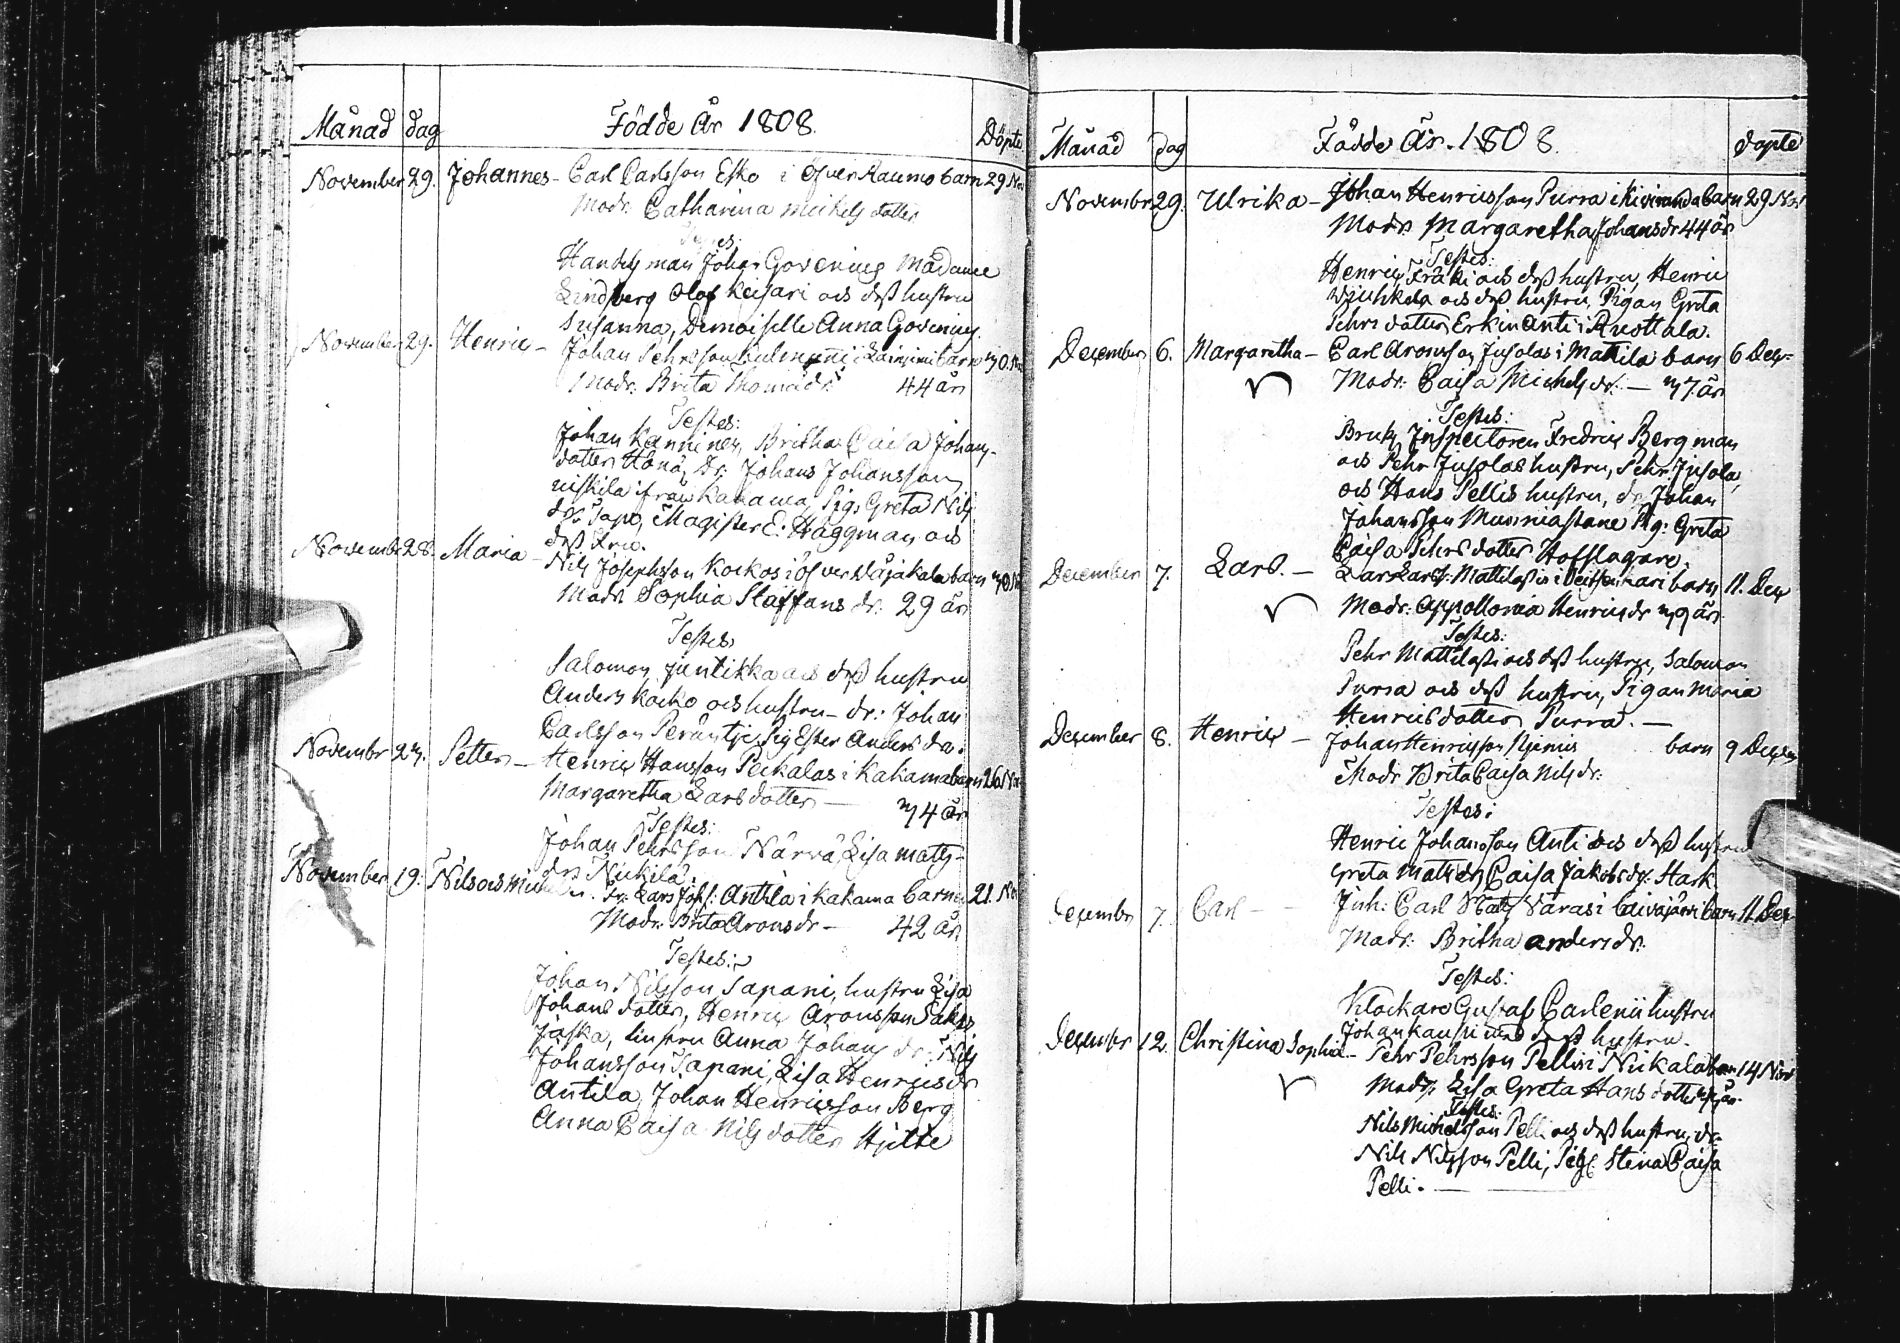 Månad dag Födde År 1808. Döpte
November 29. Johannes - Carl Carlsson Esko i Öfver Raumo barn 29 Nov
Modr. Catharina Michels dotter
Testes:
Handelsman Johan Govenius Madame
Lindberg Olof Keisari och dess hustru
Susanna, Demoiselle Anna Govenius
November 29. Henric - Johan Pehrsson barn 30. Nov
Modr. Brita Thomædr 44 år
Testes:
Johan Kanninen, Britha Caisa Johans
dotter dr. Johans Johansson
ifrån Kakama, Pig. Greta Nils
dr. Magister E. Häggman och
dess Fru.
November 28. Maria - Nils Josephsson Kockos i öfver barn 30 Nov
Modr Sophia Staffans dr. 29 år
Testes
Salomon Juntikka och dess hustru
Anders Kocko och hustru - dr: Johan
Carlsson Pig Ester Anders dr.
Novembr 23. Petter - Henric Hansson Peckalas i Kakama barn 26 Nov
Margaretha Lars dotter - 34 år
Testes:
Johan Pehrsson Närvä, Lisa Matts
dr. Nickila.
November 19. Nils och Michel Lars Johs: Anttila i Kakama barn 21. Nov
Modr. Brita Arons dr - 42 år.
Testes:
Johan Nilsson Tapani, hustru Lisa
Johans dotter, Henric Aronsson
hustru Anna Johans dr. Nils
Johansson Tapani, Lisa Henrics dr
Antila, Johan Henricsson Berg
Anna Caisa Nils dotter Hjitte
Månad dag Födde År. 1808. Döpte
Novembr 29. Ulrika - Johan Henricsson Purra i Kiviranda barn 29 Nov
Modr. Margaretha Johansdr 44 år
Testes:
Henric och dess hustru, Henric
och dess hustru, Pigan Greta
Pehrs dotter Erkinanti i Ruottala.
December 6. Margaretha - Carl Aronsson Jusolas i Mattila barn 6 Dec
Modr: Caisa Michels dr. - 37 år
Testes:
Bruks Inspectoren Fredric Bergman
och Pehr Jusolas hustru, Pehr Jusola,
och Hans Pellis hustru, dr Johan
Johansson Pig. Greta
Caisa Pehrs dotter Hofslagare.
December 7. Lars. - Lars Larss: barn 11. Dec
Modr: Appollonia Henrics dr 39 år
Testes:
Pehr och dess hustru, Salomon
Purra och dess hustru, Pigan Maria
Henrics dotter Purra. -
December 8. Henric - Johan Henricsson barn 9 Decem
Modr Brita Caisa Nils dr.
Testes:
Henric Johansson Anti och dess hustru
Greta Caisa Jakobs dr. Hark
December 7. Carl - - Inh: Carl Matts Varas i Laivajärvi barn 11 Dec
Modr: Britha Anders dr.
Testes:
Klockare Gustaf Carlenii hustru
Johan och dess hustru.
December 12. Christina Sophia - Pehr Pehrsson Pellis i Nickala barn 14 Nov
Modr. Lisa Greta Hans dotter år.
Testes:
Nils Michelsson Pelli och dess hustru, dr
Nils Nilsson Pelli, Pig. Stina Caisa
Pelli. -